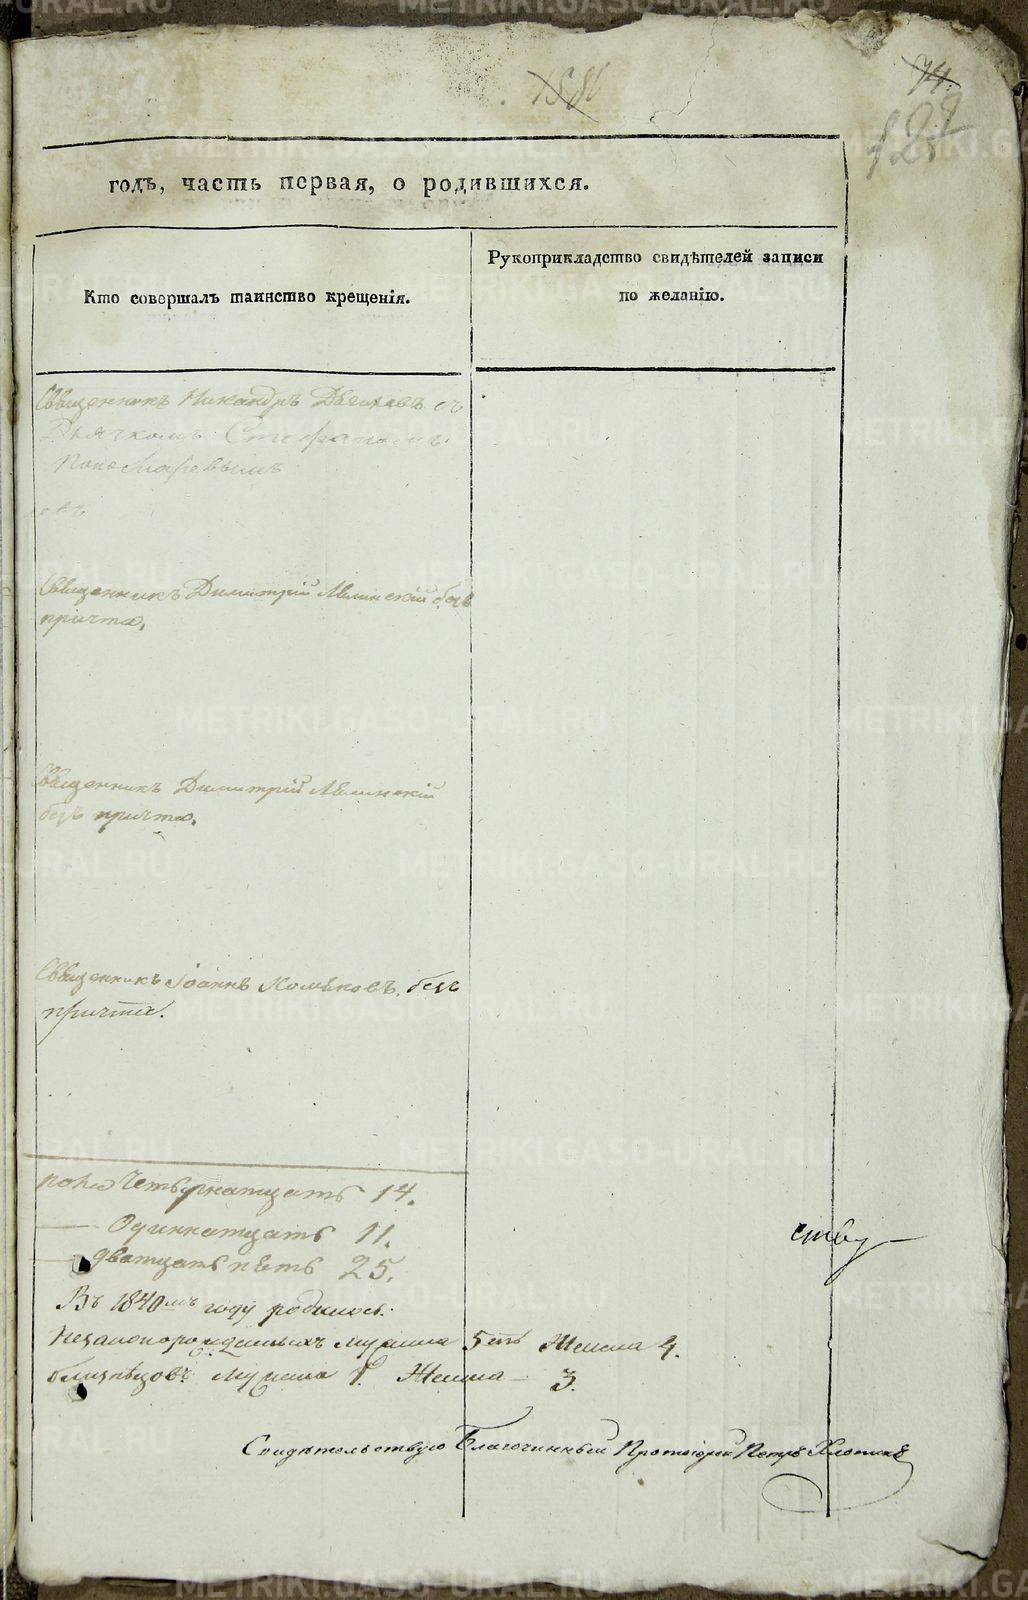 74.
годъ, часть первая, о родившихся.
Кто совершалъ таинство крещенія.
Рукоприкладство свидѣтелей записи
по желанію.
Священникъ Никандръ съ
Дьячкомъ Стефаномъ
Пономаревымъ
Священникъ Димитрій безъ
причта.
Священникъ Димитрій
безъ причта.
Священникъ Іоаннъ Хомяковъ, безъ
причта.
пола Четырнатцать 14.
Одиннатцать 11.
дватцать пять 25.
ству
Въ 1840мъ году родилось:
Незаконорожденныхъ мужеска 5ть Женска 4.
близнѣцовъ Мужеска 1. Женска — 3.
Свидѣтельствую Благочинный Протоіерей Петръ
METRIKI.GASO-URAL.RU